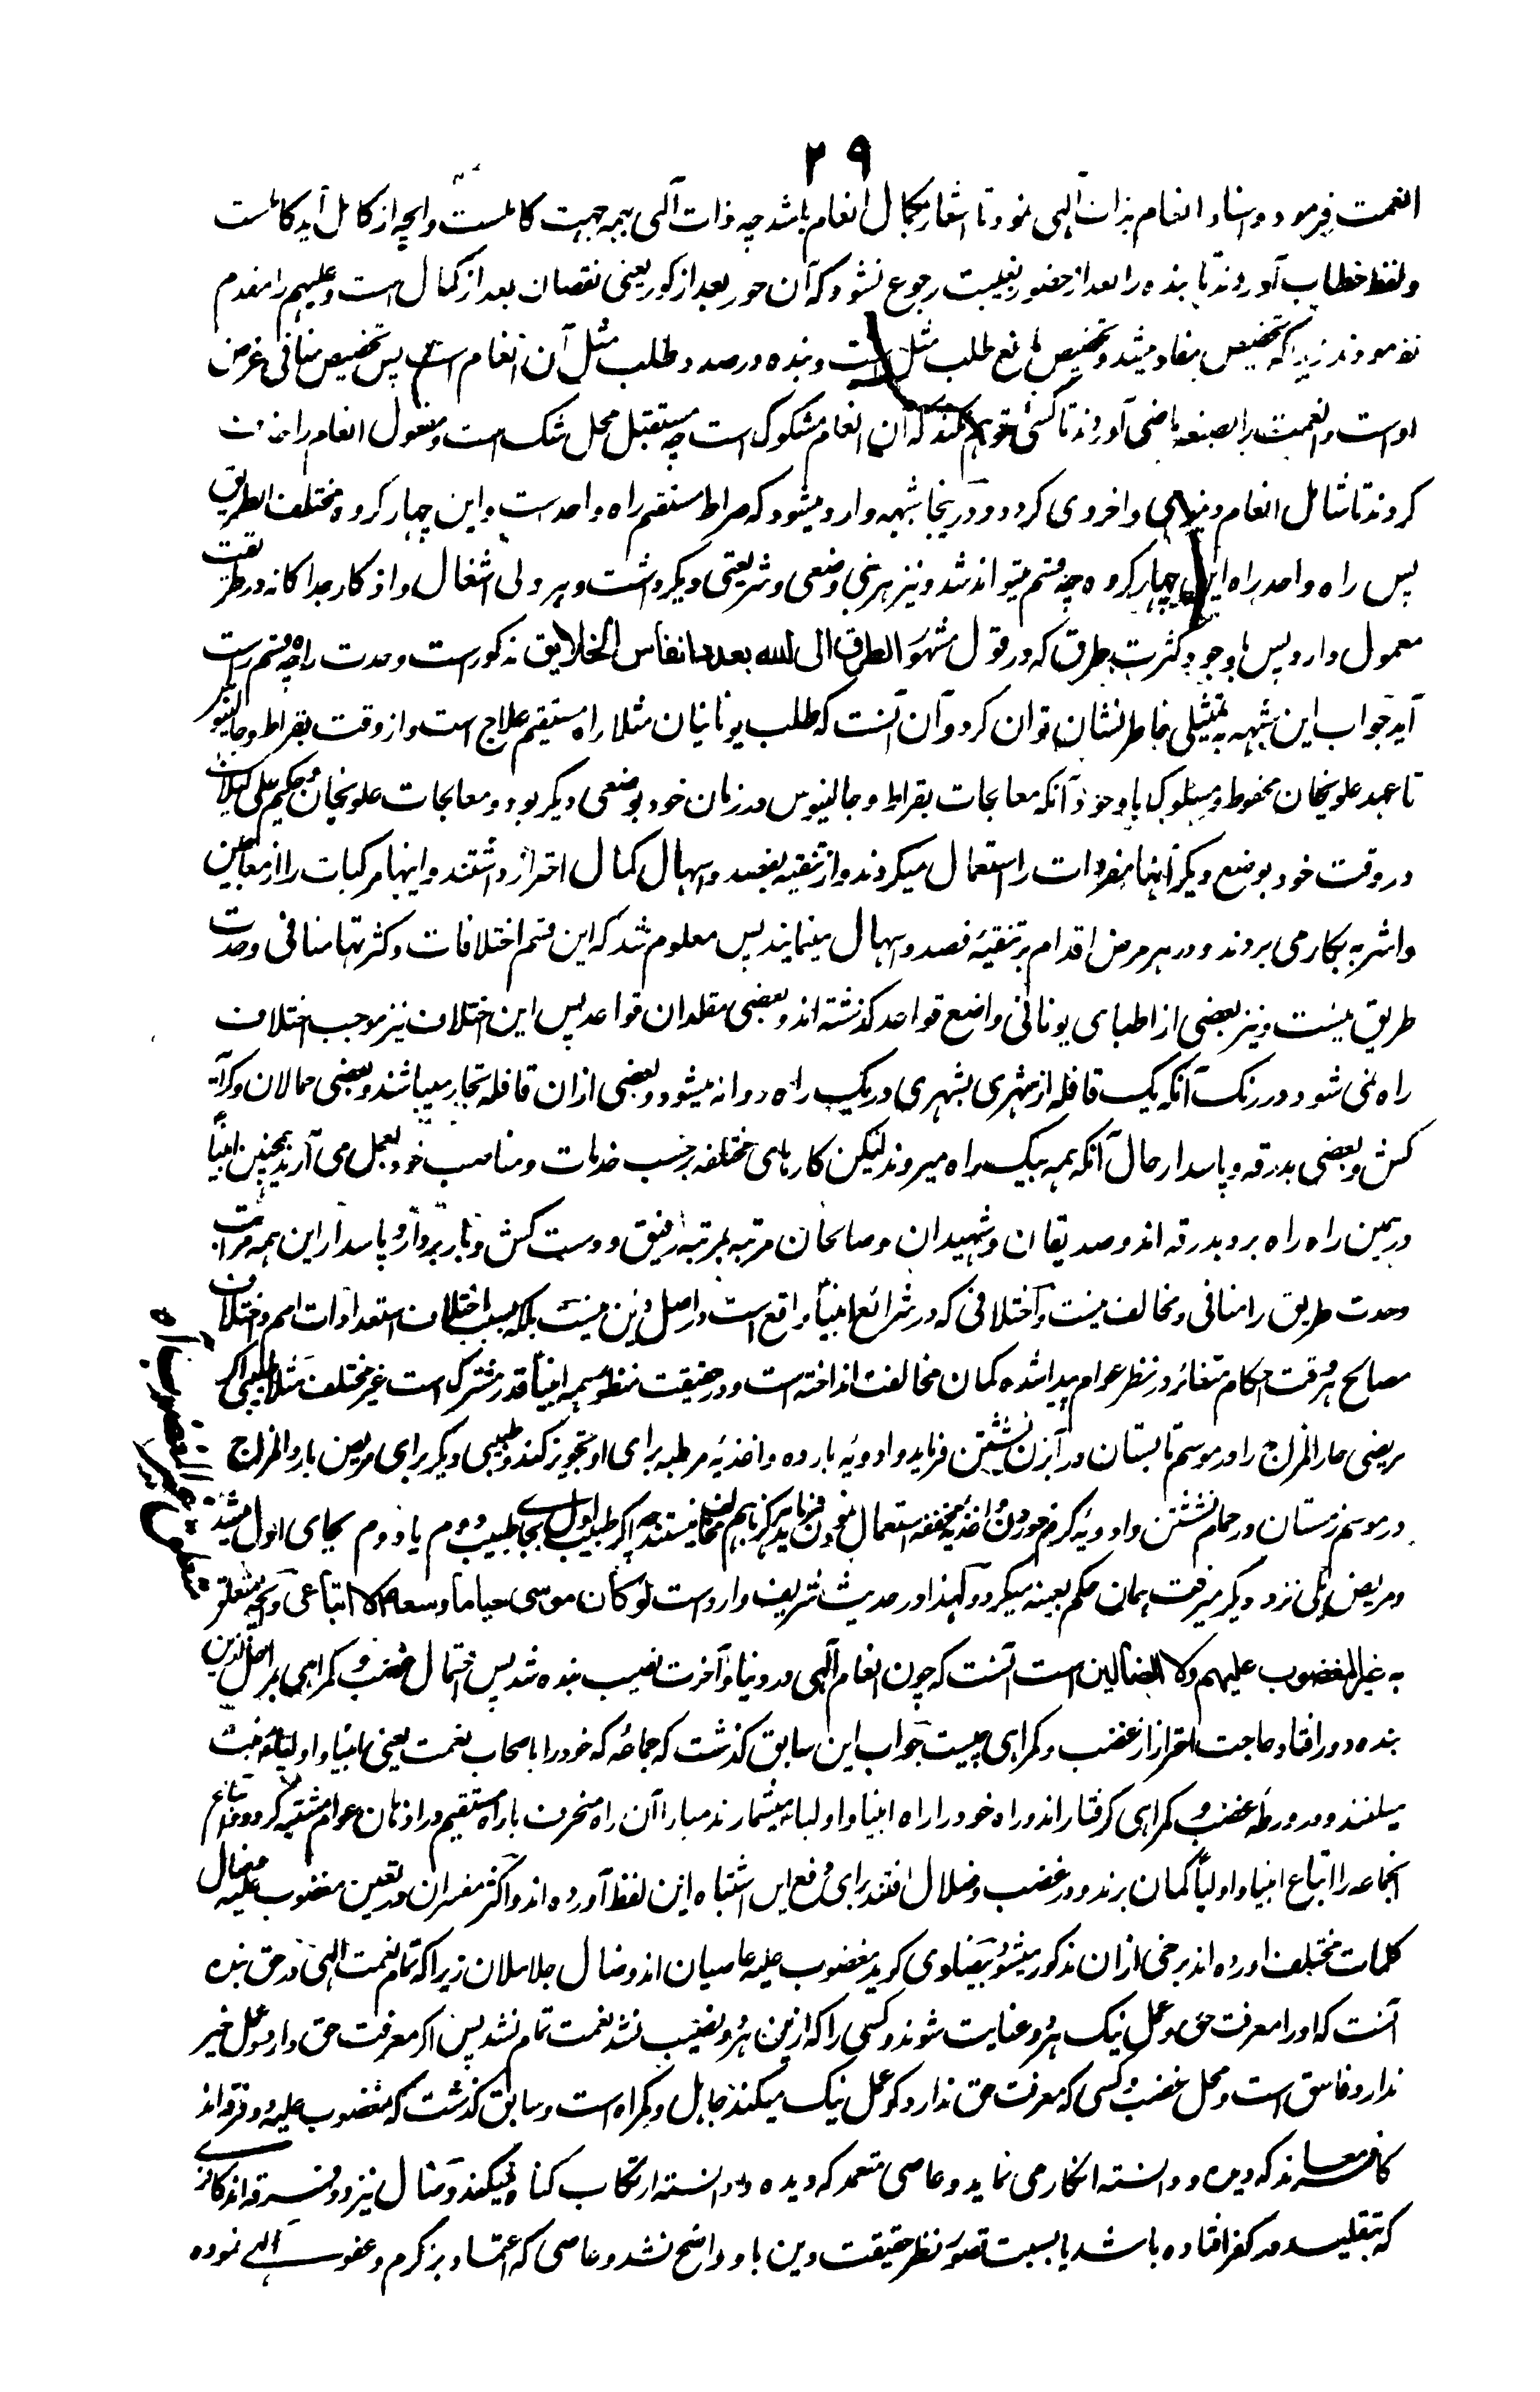 ۲۹
انعمت فرمود و اسناد انعام بذات الهی نمود تا اشعار بکمال انعام باشد چه ذات آلهی بهمه جهت کاملست و انچه از کامل آید کاملست
و لفظ خطاب آوردند تا بنده را بعد از حضور بغیبت رجوع نشود که آن حور بعد از کور یعنی نقصان بعد از کمال است و علیهم را مقدم
نفرمودند زیرا که تخصیص مفاد میشد و تخصیص مانع طلب مثل است و بنده در صدد طلب مثل آن انعام است پس تخصیص منافی غرض
اوست و انعمت را بصیغه ماضی آوردند تا کسی توهم نکند که آن انعام مشکوک است چه مستقبل محل شک است و مفعول انعام را حذف
کردند تا شامل انعام دنیاوی و اخروی گردد و در ینجا شبهه وارد میشود که صراط مستقیم راه واحد است و این چهار گروه مختلف الطریق
پس راه واحد راه این چهار گروه چه قسم میتواند شد و نیز هر نبی وضعی و شریعتی دیگر داشت و هر ولی اشغال و اذکار جداگانه در طریقت
معمول دارد پس با وجود کثرت طرق که در قول مشهور الطرق الی الله بعدد انفاس الخلایق مذکور است وحدت راه چه قسم راست
آید جواب این شبهه به تمثیلی خاطرنشان توان کرد و آن آنست که طب یونانیان مثلا راه مستقیم علاج است و از وقت بقراط و جالینوس
تا عهد علویخان محفوظ و مسلوک با وجود آنکه معالجات بقراط و جالینوس در زمان خود بوضعی دیگر بود و معالجات علویخان و حکیم علی گیلانی
در وقت خود بوضع دیگر آنها مفردات را استعمال میکردند و از تنقیه بفصد و اسهال کمال احتراز داشتند و اینها مرکبات را از معاجین
و اشربه بکار می بردند و در هر مرض اقدام بر تنقیهٔ فصد و اسهال مینمایند پس معلوم شد که این قسم اختلافات و کثرتها منافی وحدت
طریق نیست و نیز بعضی از اطبای یونانی واضع قواعد گذشته اند و بعضی مقلدان قواعد پس این اختلاف نیز موجب اختلاف
راه نمی شود در رنگ آنکه یک قافله از شهری بشهری در یک راه روانه میشود و بعضی ازان قافله تجار میباشند و بعضی حمالان و کرایه
کش و بعضی بدرقه و پاسدار حال آنکه همه بیک راه میروند لیکن کارهای مختلفه بر حسب خدمات و مناصب خود بعمل می آرند همچنین انبیا
در همین راه راه برو بدرقه اند و صدیقان و شهیدان و صالحان مرتبه بمرتبه رفیق و دست کش و باربردار و پاسدار این همه مراتب
وحدت طریق را منافی و مخالف نیست و اختلافی که در شرائع انبیا واقع است در اصل دین نیست بلکه بسبب اختلاف استعدادات امم و اختلاف
مصالح هر وقت احکام متغائر در نظر عوام پیدا شده گمان مخالفت انداخته است و در حقیقت منظور همه انبیا قدر مشترک است غیر مختلف مثلا طبیبی اگر
مریضی حار المزاج را در موسم تابستان در آبزن نشستن فرماید و ادویهٔ بارده و اغذیهٔ مرطبه برای او تجویز کند و طبیبی دیگر برای مریض بارد المزاج
در موسم زمستان در حمام نشستن و ادویهٔ گرم خوردن و اغذیهٔ مجففه استعمال نمودن فرماید هرگز باهم مخالف نیستند چه اگر طبیب اول بجای طبیب دوم یا دوم بجای اول میشد
و مریض یکی نزد دیگر میرفت همان حکم بعینه میکرد و لهذا در حدیث شریف وارد است لو کان موسی حیا ما وسعه الا اتباعی و آنچه متعلق
به غیر المغضوب علیهم ولا الضالین است آنست که چون انعام آلهی در دنیا و آخرت نصیب بنده شد پس احتمال غضب و گمراهی بر اصل ازین
بنده دور افتاد حاجت احتراز از غضب و گمراهی چیست جواب این سابق گذشت که جماعه که خود را باصحاب نعمت یعنی انبیا و اولیا منتسب
میکنند و در ورطهٔ غضب و گمراهی گرفتار اند و راه خود را راه انبیا و اولیا میشمارند مبادا آن راه منحرف با راه مستقیم در اذهان عوام مشتبه گردد و اتباع
آنجماعه را اتباع انبیا و اولیا گمان برند و در غضب و ضلال افتند برای دفع این اشتباه این لفظ آورده اند و اکثر مفسران در تعین مغضوب علیهم و ضال
کلمات مختلف آورده اند برخی ازان مذکور میشود بیضاوی گوید مغضوب علیه عاصیان اند و ضال جاهلان زیرا که تمام نعمت الهی در حق بنده
آنست که او را معرفت حق و عمل نیک هر دو عنایت شوند و کسی را که ازین هر دو نصیب نشد نعمت تمام نشد پس اگر معرفت حق دارد و عمل خیر
ندارد فاسق است و محل غضب و کسی که معرفت حق ندارد گو عمل نیک میکند جاهل و گمراه است و سابق گذشت که مغضوب علیه دو فرقه اند
کافر معاند که دیده و دانسته انکار می نماید و عاصی متعمد که دیده و دانسته ارتکاب گناه میکند و ضال نیز دو فرقه اند کافری
که بتقلید در کفر افتاده باشد یا بسبب قصور نظر حقیقت دین باو واضح نشد و عاصی که اعتماد بر کرم و عفو الهی نموده